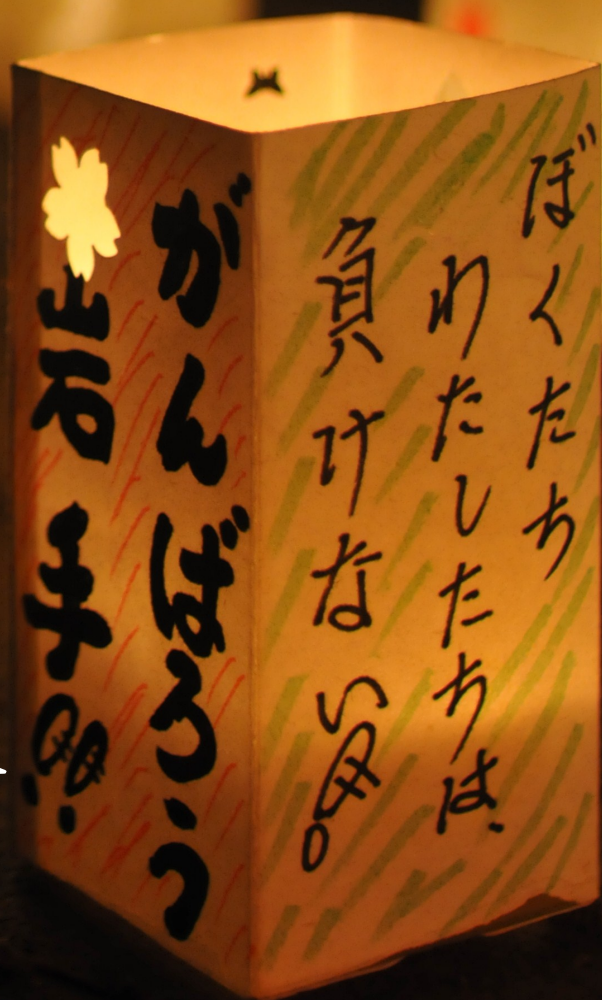 ぼくたち
わたしたちは、
負けない!
がんばろう
岩手!!